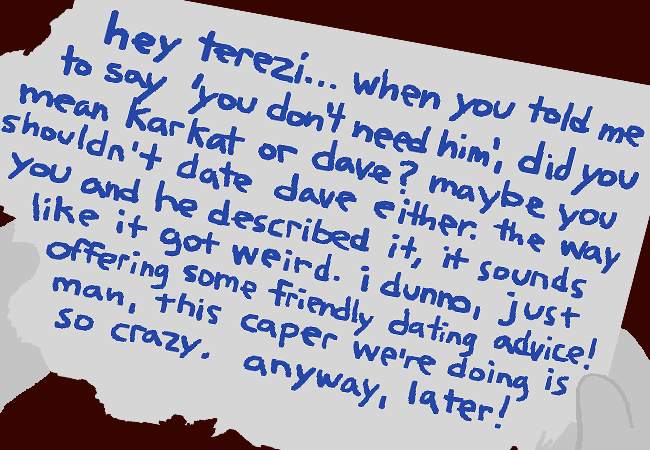 hey terezi... when you told me
to say 'you don't need him', did you
mean karkat or dave? maybe you
shouldn't date dave either. the way
you and he described it, it sounds
like it got weird. i dunno, just
offering some friendly dating advice!
man, this caper we're doing is
so crazy. anyway, later!